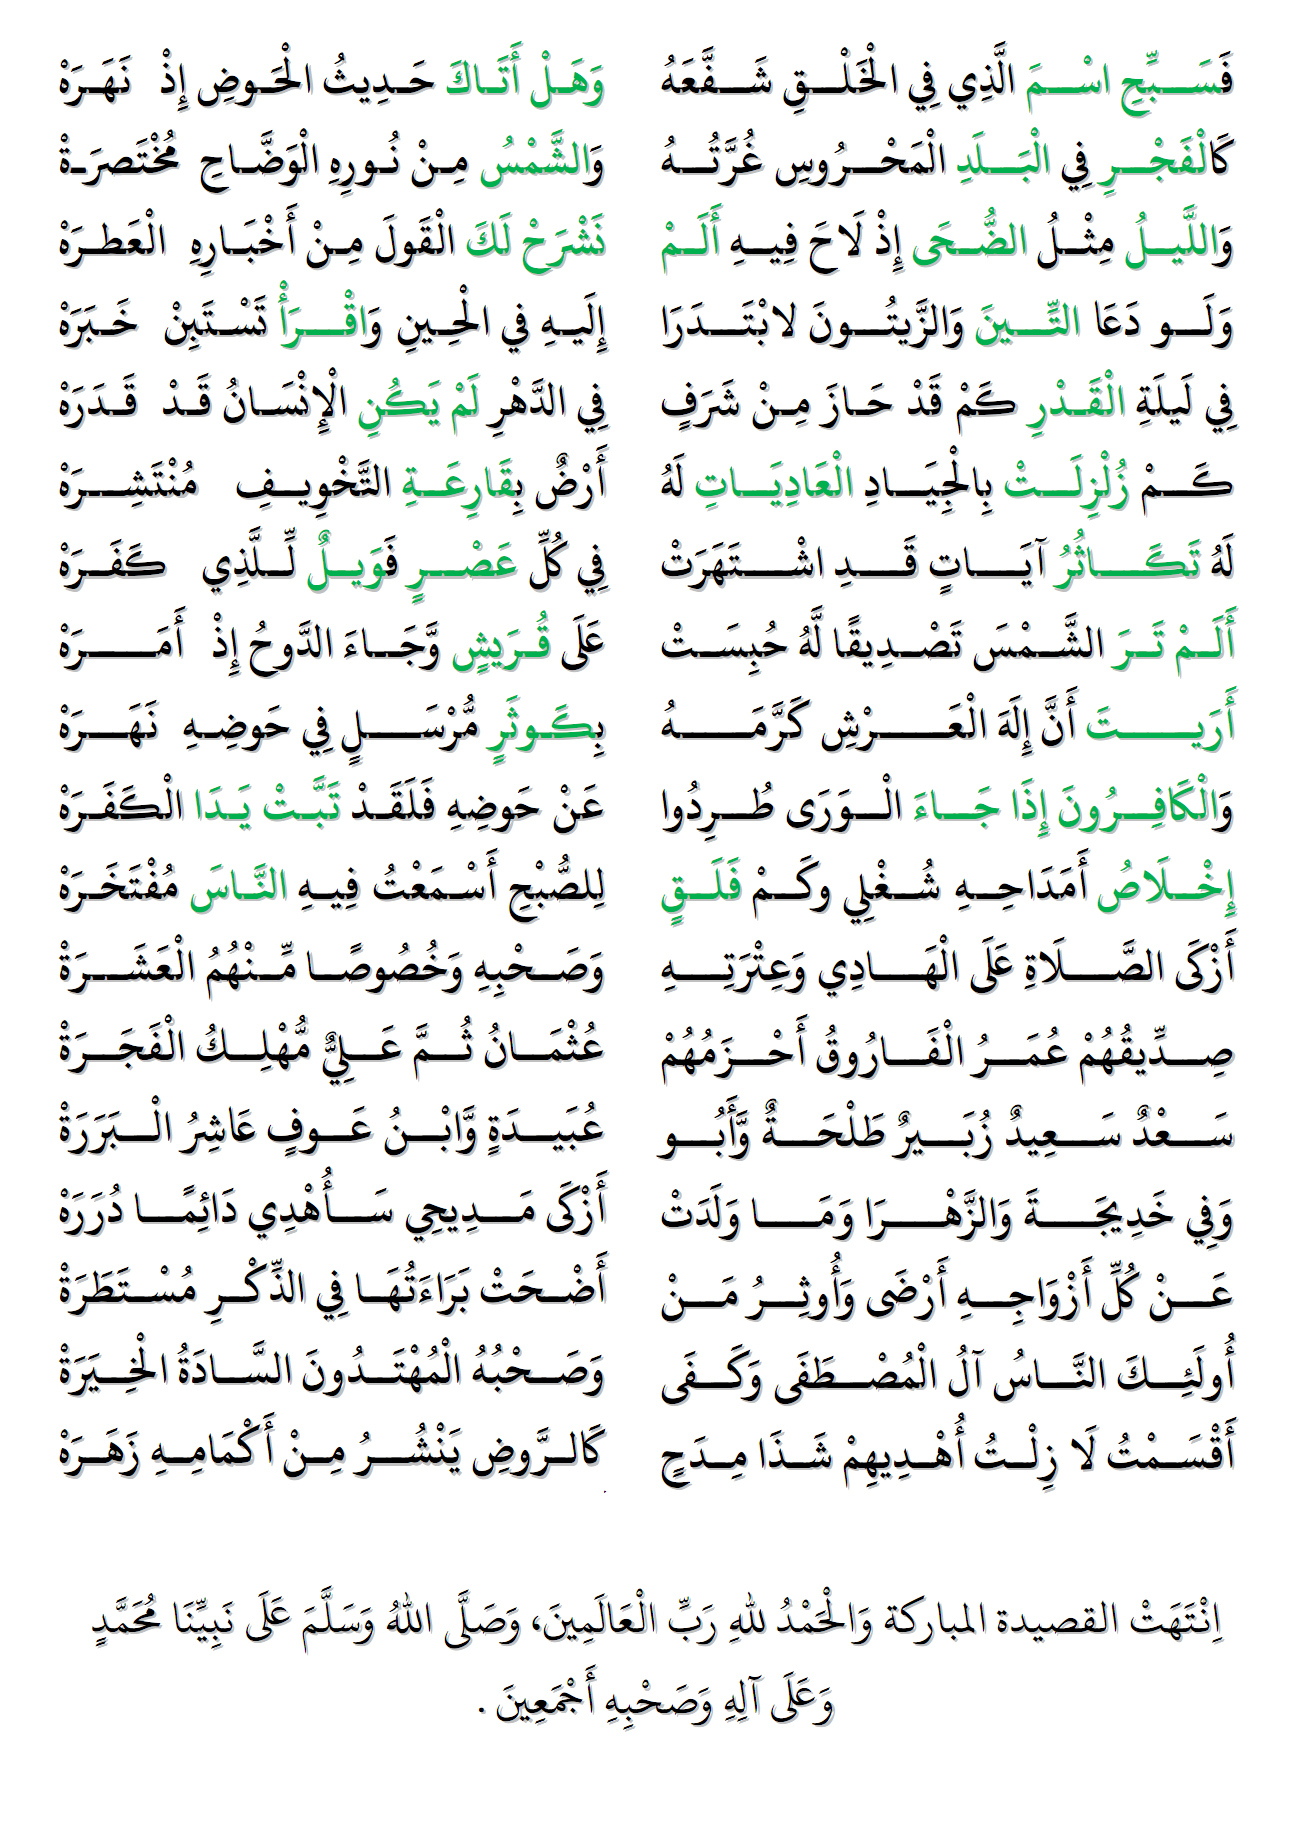 فَسَبِّحِ اسْمَ الَّذِي فِي الْخَلْقِ شَفَّعَهُ وَهَلْ أَتَاكَ حَدِيثُ الْحَوضِ إِذْ نَهَرَهْ
كَالْفَجْرِ فِي الْبَلَدِ الْمَحْرُوسِ غُرَّتُهُ وَالشَّمْسُ مِنْ نُورِهِ الْوَضَّاحِ مُخْتَصرَةْ
وَاللَّيلُ مِثْلُ الضُّحَى إِذْ لَاحَ فِيهِ أَلَمْ نَشْرَحْ لَكَ الْقَولَ مِنْ أَخْبَارِهِ الْعَطرَهْ
وَلَو دَعَا التِّينَ وَالزَّيتُونَ لابْتَدَرَا إِلَيهِ فِي الْحِينِ وَاقْرَأْ تَسْتَبِنْ خَبَرَهْ
فِي لَيلَةِ الْقَدْرِ كَمْ قَدْ حَازَ مِنْ شَرَفٍ فِي الدَّهْرِ لَمْ يَكُنِ الْإِنْسَانُ قَدْ قَدَرَهْ
كَمْ زُلْزِلَتْ بِالْجِيَادِ الْعَادِيَاتِ لَهُ أَرْضٌ بِقَارِعَةِ التَّخْوِيفِ مُنْتَشِرَهْ
لَهُ تَكَاثُرُ آيَاتٍ قَدِ اشْتَهَرَتْ فِي كُلِّ عَصْرٍ فَوَيلٌ لِّلَّذِي كَفَرَهْ
أَلَمْ تَرَ الشَّمْسَ تَصْدِيقًا لَّهُ حُبِسَتْ عَلَى قُرَيشٍ وَّجَاءَ الدَّوحُ إِذْ أَمَرَهْ
أَرَيتَ أَنَّ إِلَهَ الْعَرْشِ كَرَّمَهُ بِكَوثَرٍ مُّرْسَلٍ فِي حَوضِهِ نَهَرَهْ
وَالْكَافِرُونَ إِذَا جَاءَ الْوَرَى طُرِدُوا عَنْ حَوضِهِ فَلَقَدْ تَبَّتْ يَدَا الْكَفَرَهْ
إِخْلَاصُ أَمَدَاحِهِ شُغْلِي وكَمْ فَلَقٍ لِلصُّبْحِ أَسْمَعْتُ فِيهِ النَّاسَ مُفْتَخَرَهْ
أَزْكَى الصَّلَاةِ عَلَى الْهَادِي وَعِتْرَتِهِ وَصَحْبِهِ وَخُصُوصًا مِّنْهُمُ الْعَشَرَةْ
صِدِّيقُهُمْ عُمَرُ الْفَارُوقُ أَحْزَمُهُمْ عُثْمَانُ ثُمَّ عَلِيٌّ مُّهْلِكُ الْفَجَرَةْ
سَعْدٌ سَعِيدٌ زُبَيرٌ طَلْحَةٌ وَّأَبُو عُبَيدَةٍ وَّابْنُ عَوفٍ عَاشِرُ الْبَرَرَةْ
وَفِي خَدِيجَةَ وَالزَّهْرَا وَمَا وَلَدَتْ أَزْكَى مَدِيحِي سَأُهْدِي دَائِمًا دُرَرَهْ
عَنْ كُلِّ أَزْوَاجِهِ أَرْضَى وَأُوثِرُ مَنْ أَضْحَتْ بَرَاءَتُهَا فِي الذِّكْرِ مُسْتَطَرَةْ
أُولَئِكَ النَّاسُ آلُ الْمُصْطَفَى وَكَفَى وَصَحْبُهُ الْمُهْتَدُونَ السَّادَةُ الْخِيَرَةْ
أَقْسَمْتُ لَا زِلْتُ أُهْدِيهِمْ شَذَا مِدَحٍ كَالرَّوضِ يَنْشُرُ مِنْ أَكْمَامِهِ زَهَرَهْ
اِنْتَهَتْ القصيدة المباركة وَالْحَمْدُ للهِ رَبِّ الْعَالَمِينَ، وَصَلَّى اللهُ وَسَلَّمَ عَلَى نَبِيِّنَا مُحَمَّدٍ
وَعَلَى آلِهِ وَصَحْبِهِ أَجْمَعِينَ .